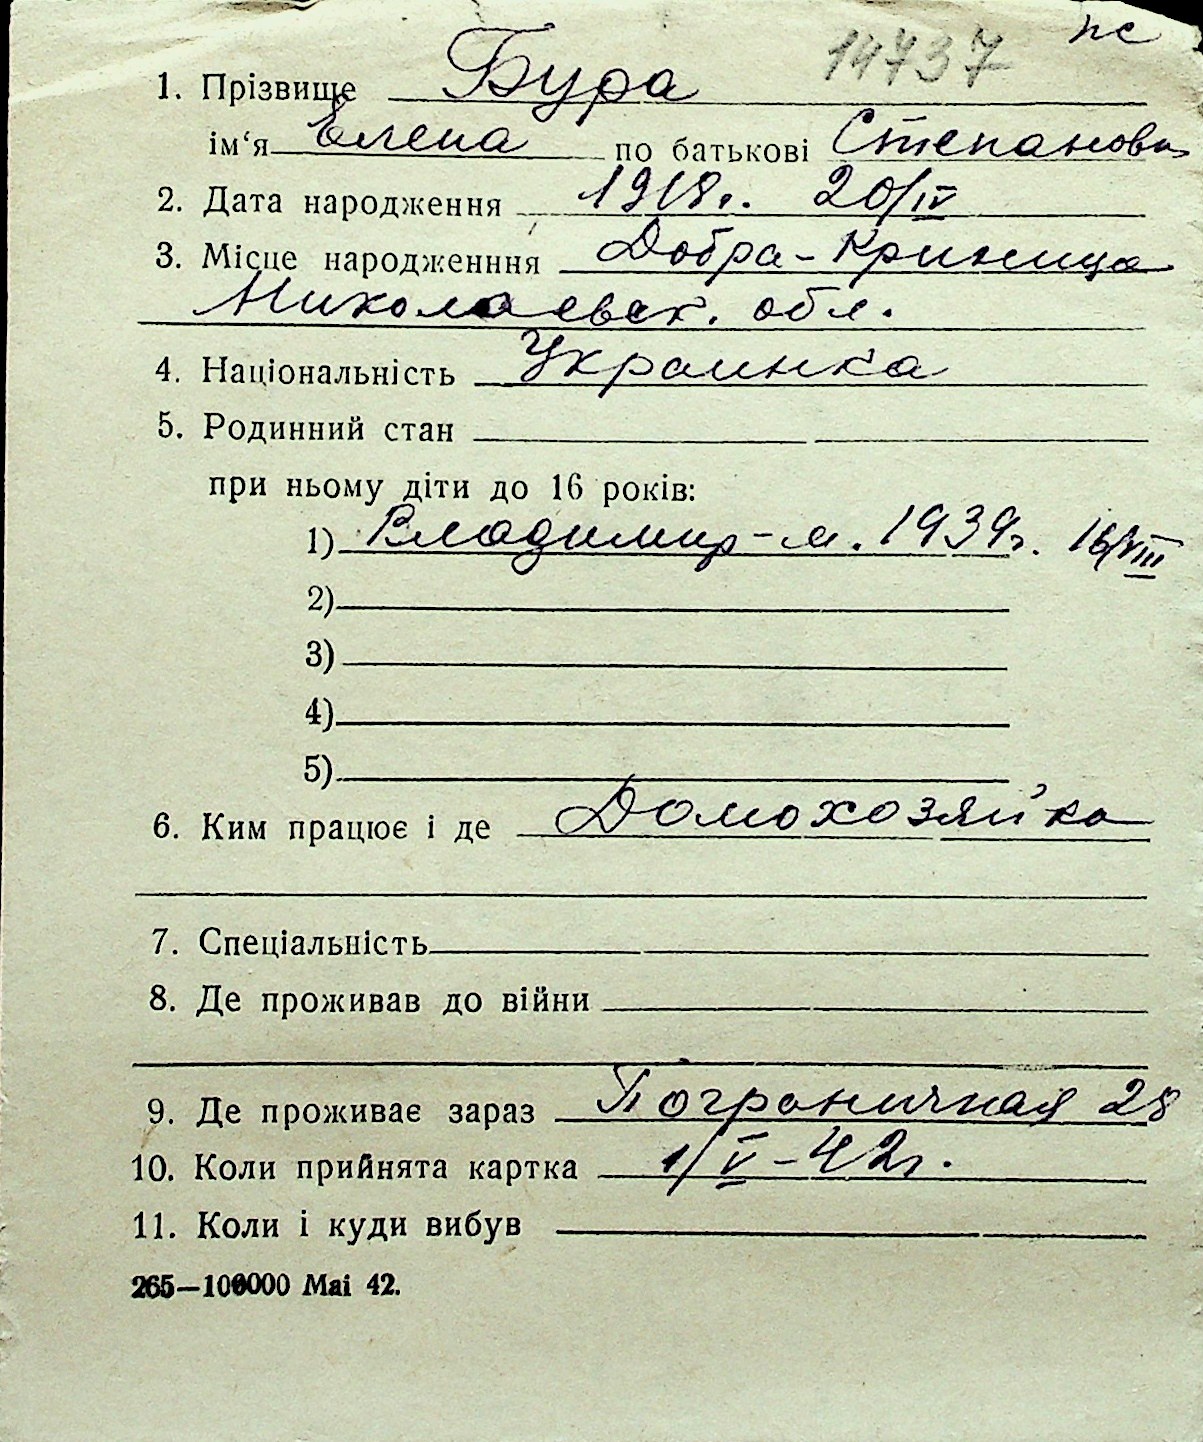 пс
14737
1. Прізвище Бура
ім‘я Елена по батькові Степановн
2. Дата народження 1918г. 20/IV
3. Місце народженння Добра-Криница
Николаевск. обл.
4. Національність Украинка
5. Родинний стан
при ньому діти до 16 років:
1) Владимир-м. 1939г. 16/VIII
2)
3)
4)
5)
6. Ким працює і де Домохозяйка
7. Спеціальність
8. Де проживав до війни
9. Де проживає зараз Пограничная 28
10. Коли прийнята картка 1/V-42г.
11. Коли і куди вибув
265—100000 Mai 42.